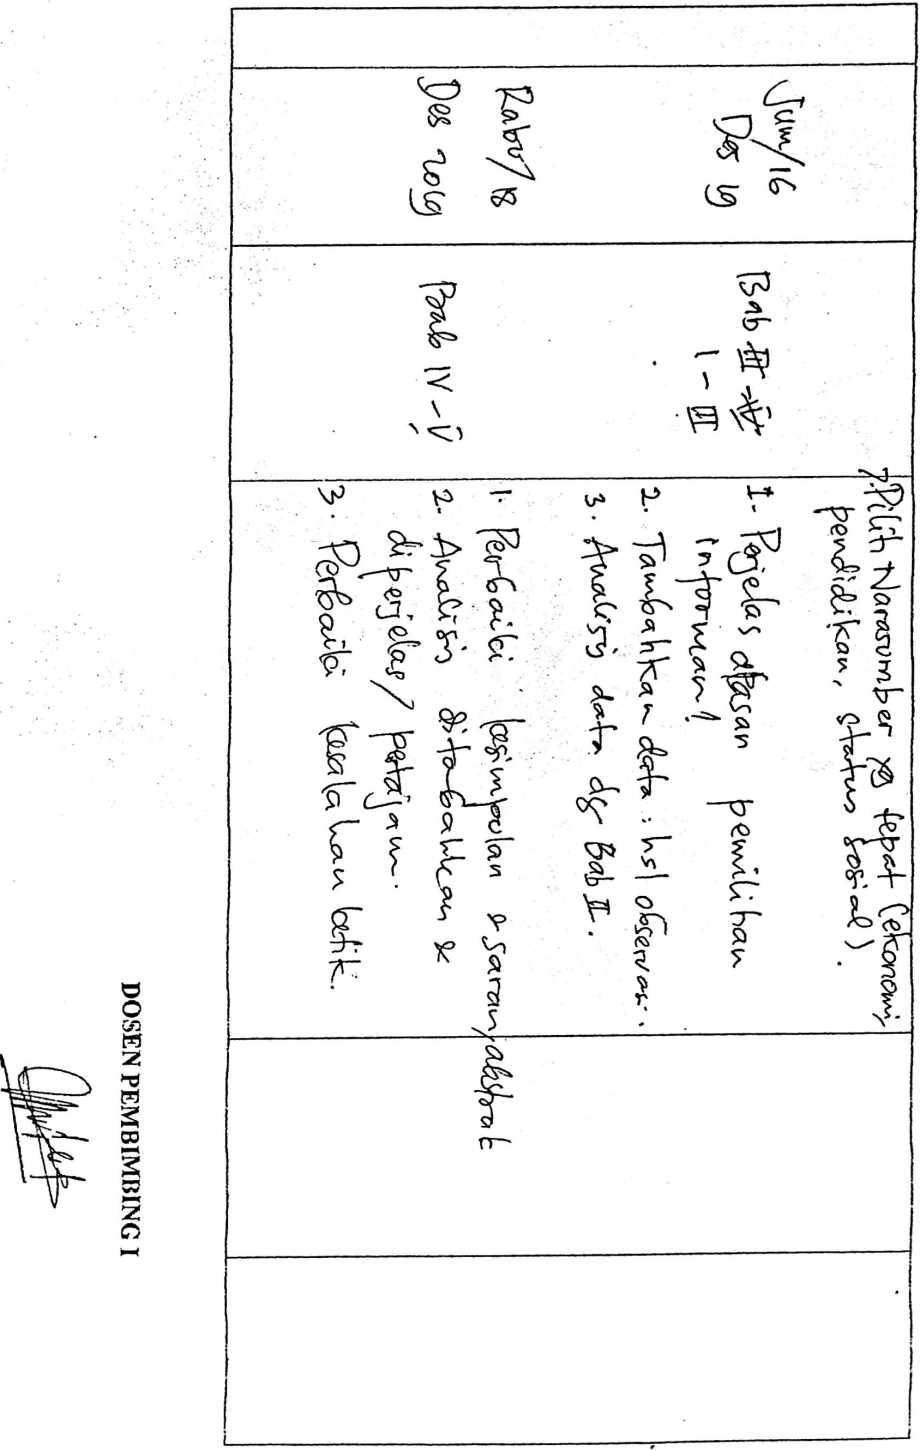 7. Pilih Narasumber yg tepat (ekonomi,
pendidikan, status sosial).
Jum/16
Des 19
Bab III - IV
I - III
1. Perjelas alasan pemilihan
informan!
2. Tambahkan data : hsl observasi.
3. Analisis data dg Bab II.
Rabu/18
Des 2019
Bab IV - V
1. Perbaiki kesimpulan & saran, abstrak
2. Analisis ditabahkan &
diperjelas/pertajam.
3. Perbaiki kesalahan ketik.
DOSEN PEMBIMBING I